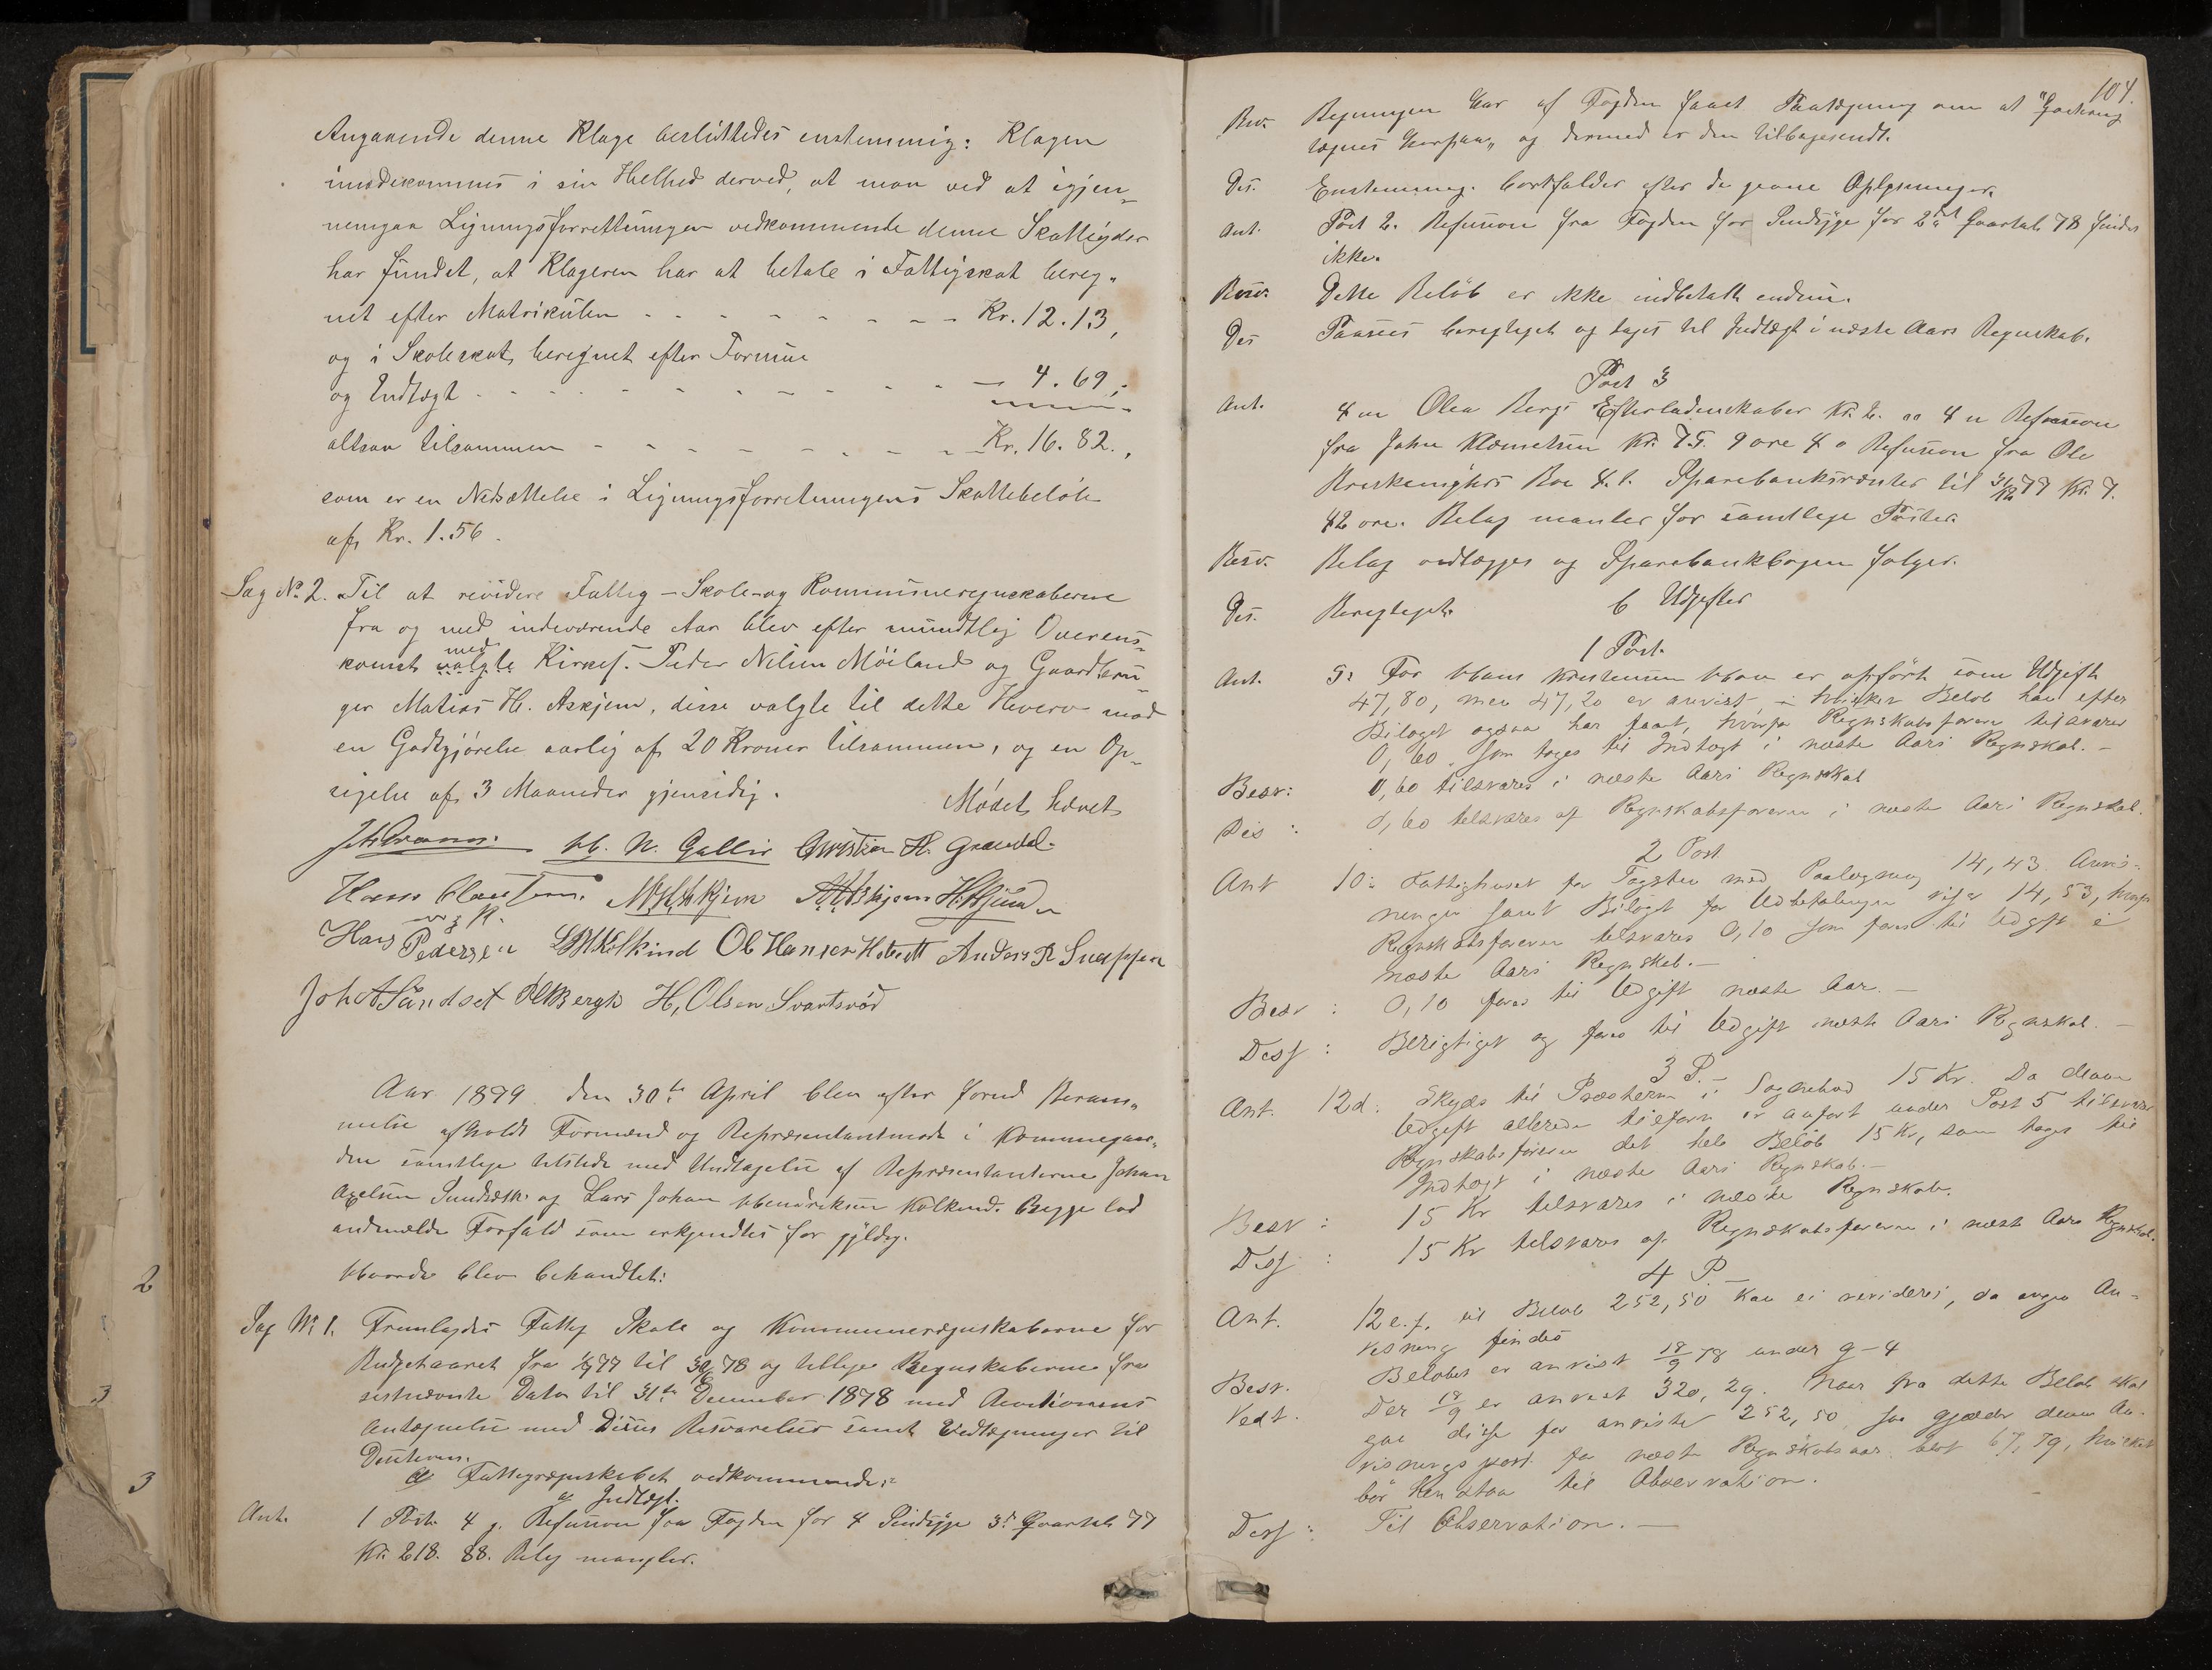 Angaaende denne Klage besluttedes enstemmig: Klagen
imødekommes i sin Helhed derved, at man ved at igjen-
nemgaa Ligningsforretningen vedkommende denne Skatteyder
har fundet, at Klageren har at betale i Fattigskat bereg-
net efter Matrikulen - - - - - - - - Kr. 12.13,
og i Skoleskat, beregnet efter Formue
og Indtægt - - - - - - - - - 4.69,-
altsaa tilsammen - - - - - - - - Kr. 16.82.,
som er en Nedsættelse i Ligningsforretningens Skattebeløb
af Kr. 1.56.
Sag No. 2. Til at revidere Fattig-Skole-og Kommuneregnskaberne
fra og med indeværende Aar blev efter mundtlig Overens-
komst med valgte Kirkes. Peder Nilsen Möiland og Gaardbru-
ger Matias H. Askjem, disse valgte til dette Hverv mod
en Godtgjørelse aarlig af 20 Kroner tilsammen, og en Op-
sigelse af 3 Maaneder gjensidig.
Mødet hævet
N. Gallis Christian H. Grændal
Hans Clausen.
Hans Pedersen Ole Hansen Anders R Snappen
Joh A Sundset Bergh H, Olsen Svartsrød
Aar 1879 den 30te April blev efter forud Beram-
melse afholdt Formænd og Repræsentantmøde i Kommunegaar-
den samtlige tilstede med Undtagelse af Repræsentanterne Johan
Axelsen Sundseth og Lars Johan Hendriksen Kolkind. Begge lod
andmelde Forfald som erkjendtes for gyldig.
Hvorda blev behandlet:
Sag No 1. Fremlagdes Fattig Skole og Kommuneregnskaberne for
Budgetaaret fra 1/7 77 til 30/6 78 og tillige Regnskaberne fra
sistnævnte Dato til 31te December 1878 med Revisionens
Antegnelse med Disses Besvarelser samt Vedtegninger til
Desision.
a Fattigregnskabet vedkommende:
a Indtægt.
Ant. 1 Post 4 g. Refusion fra Fogden for 4 Sindsyge 3d Qvartal 77
Kr. 218. 88. Belag mangler.
104.
Besv. Regningen har af Fogden faaet Paategning om at "Qvittering
tegnes herpaa" og dermed er den tilbagesendt.
Des. Enstemmig. bortfalder efter de givne Oplysninger.
Ant. Post 2. Refusion fra Fogden for Sindsyge for 2det Qvartal 78 findes
ikke.
Besv. Dette Beløb er ikke indbetalt endnu.
Des Paasees berigtiget og tages til Indtægt i næste Aars Regnskab.
Post 3
Ant. 4 m Olea Bergs Efterladenskaber Kr. 2. 4 n Refusion
fra John Klemetsen Kr. 75. 9 øre 4 o Refusion fra Ole
Bo 4. t. Sparebanksrenter til 31/12 77 Kr. 7.
42 øre. Belag manler for samtlige Poster.
Besv. Belag vedlægges og Sparebankbogen følger.
Des. Berigtiget.
b Udgifter
1 Post.
Ant. 5: For Hans Kristensen er opført som Udgift
47,80, men 47,20 er anvist, - hvilket Beløb han efter
Bilaget ogsaa har faaet, hvorfor Regnskabsføreren tilsvarer
0,60. som tages til Indtægt i næste Aars Regnskab. -
Besv: 0,60 tilsvares i næste Aars Regnskab
Des: 0,60 tilsvares af Regnskabsføreren i næste Aars Regnskab.
2 Post
Ant 10: Fattighuset for med Paalegning 14,43 Anvis-
ningen samt Bilaget for Udbetalingen viser 14,53, hvorfor
Regnskabsføreren tilsvares 0,10 som føres til Udgift i
næste Aars Regnskab. -
Besv: 0,10 føres til Udgift næste Aar. -
Des: Berigtiget og føres til Udgift næste Aars Regnskab. -
3 P. -
Ant. 12d. Skyds til Præsterne i Sognebud 15 Kr. Da denne
Udgift allerede tilforn er anført under Post 5 tilsvarer
Regnskabsføreren det hele Beløb 15 Kr, som tages til
Indtægt i næste Aars Regnskab. -
Besv: 15 Kr tilsvares i næste Regnskab.
Des: 15 Kr tilsvares af Regnskabsføreren i næste Aars Regnskab.
4 P. -
Ant. 12 e.f. til Beløb 252,50 Kan ei revideres, da ingen An-
visning findes
Besv. Beløbet er anvist 18/9 78 under 9-4
Vedt. Der 18/9 er anvist 320,29. Naar fra dette Beløb skal
gaa disse før anviste 252,50 saa gjælder denne An-
visningspost for næste Regnskabsaar blot 67,79, hvilket
bör henstaa til Observation.
Des: Til Observation. -
2
3
3